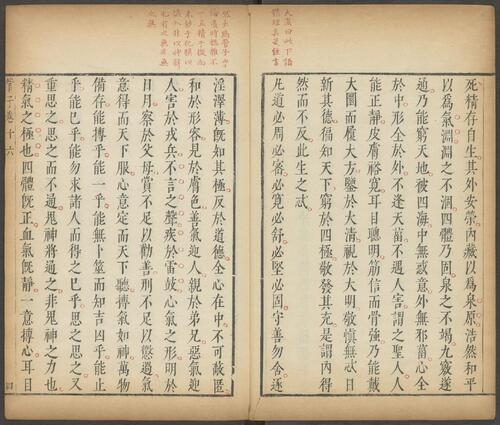 大
此下語
理真是經言
死精存自生其外安榮內藏以為泉原浩然和平
以為氣淵淵之不涸四體乃固泉之不竭九竅遂
通乃能窮天地被四海中無惑意外無邪菑心全
於中形全於外不逢天菑不遇人害謂之聖人人
能正靜皮膚裕寬耳目聰明筋信而骨強乃能戴
大圜而履大方鑒於大清視於大明敬慎無忒日
新其德徧知天下窮於四極敬發其充是謂內得
然而不反此生之忒
凡道必周必密必寬必舒必堅必固守善勿舍逐
論道時猶雜不
未妙于
之無
淫澤薄旣知其極反於道德全心在中不可蔽匿
和於形容見於膚色善氣迎人親於弟兄惡氣迎
人害於戎兵不言之聲疾於雷鼓心氣之形明於
日月察於父母賞不足以勸善刑不足以懲過氣
意得而天下服心意定而天下聽摶氣如神萬物
備存能摶乎能一乎能無卜筮而知吉凶乎能止
乎能已乎能勿求諸人而得之己乎思之思之又
重思之思之而不通鬼神將通之非鬼神之力也
精氣之極也四體旣正血氣旣靜一意摶心耳目
管子卷十六